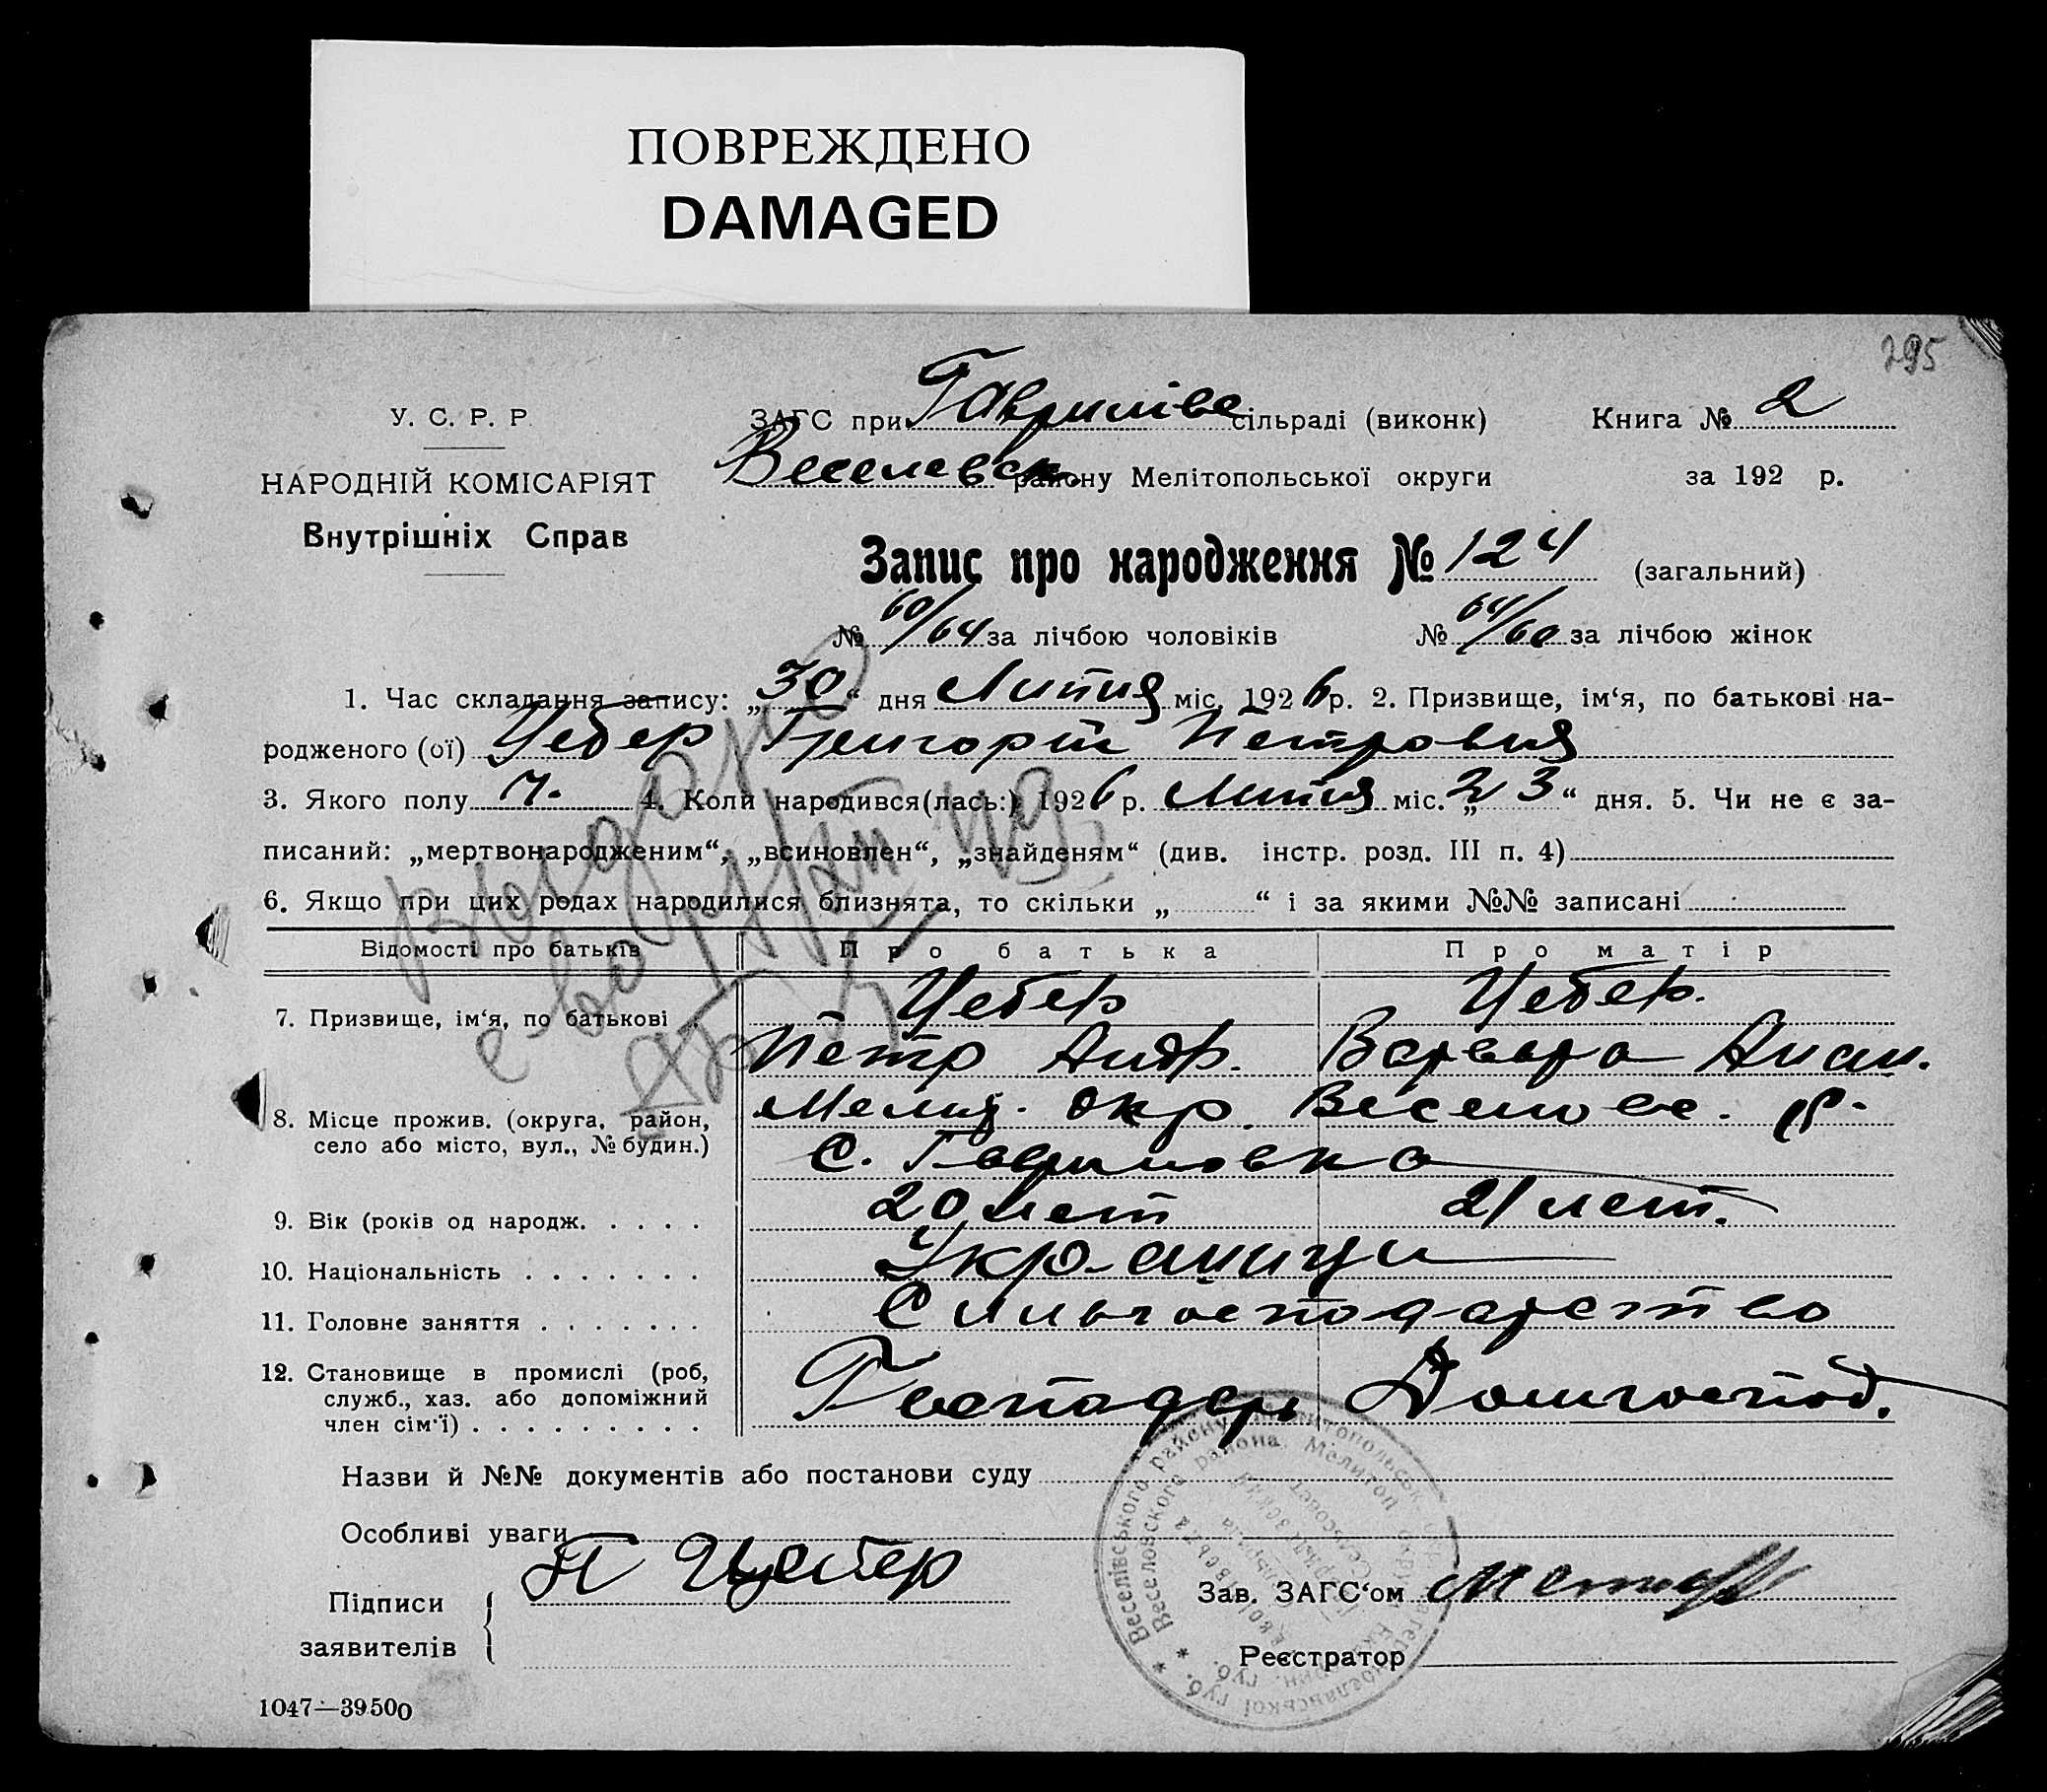 ПОВРЕЖДЕНО
DAMAGED
295
У. С. Р. Р.
НАРОДНІЙ КОМІСАРІЯТ
Внутрішніх Справ
ЗАГС при Гаврилівс сільраді (виконк)
Веселовск. району Мелітопольської округи
Книга № 2
за 192 р.
Запис про народження № 124 (загальний)
№ 60/64 за лічбою чоловіків № 64/60 за лічбою жінок
1. Час складання запису: „30“ дня Липня міс. 1926 р. 2. Призвище, ім‘я, по батькові на-
родженого (ої) Цебер Григорій Петровия
3. Якого полу ч. 4. Коли народився(лась:) 1926 р. Липня міс. „23“ дня. 5. Чи не є за-
писаний: „мертвонародженим“, „всиновлен“, „знайденям“ (див. інстр. розд. III п. 4)
6. Якщо при цих родах народилися близнята, то скільки „ “ і за якими №№ записані
Відомості про батьків Про батька Про матір
7. Призвище, ім‘я, по батькові Цебер Цебер.
Петр Андр. Варвара Анан.
8. Місце прожив. (округа, район,
село або місто, вул., № будин.)
Мелит. окр. Веселовс. р.
С. Гавриловка
9. Вік (років од народж. . . . . 20 лет 21 лет.
10. Національність . . . . . . . Укр-аинци
11. Головне заняття . . . . . . . Сильгосподарство
12. Становище в промислі (роб,
служб., хаз. або допоміжний
член сім‘ї) . . . . . . . . .
Господарь Домгоспод.
Назви й №№ документів або постанови суду
Особливі уваги
Підписи
заявителів
П Цебер
Зав. ЗАГС‘ом
Реєстратор
Веселівського району Мелітопольськ.
Веселовского района. Мелитоп.
1047—39500